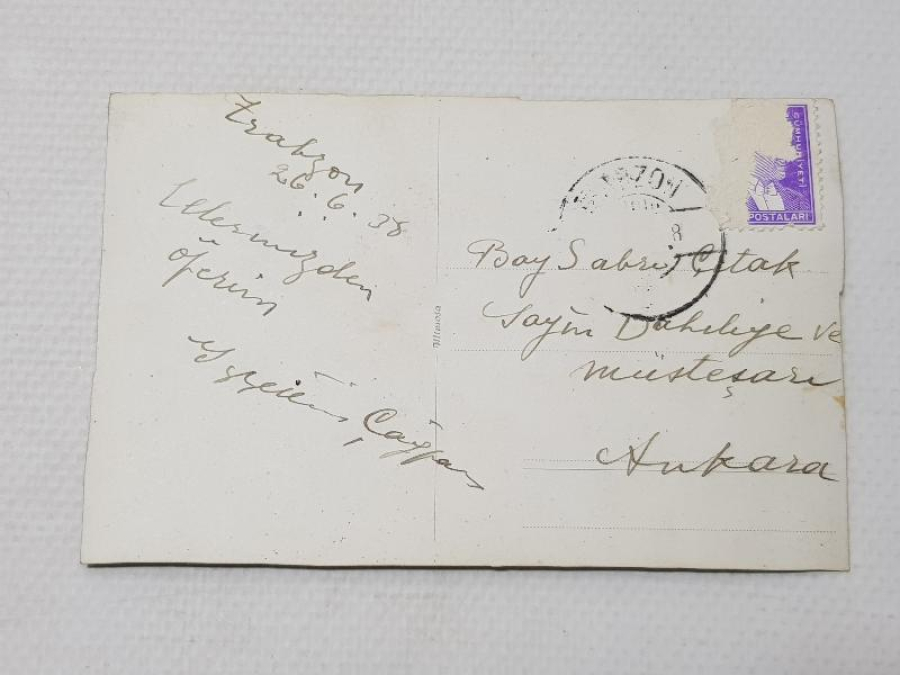 Trabzon
26.6.38
Ellerinizden
öperim
Çağpar
Bay Sabri Çıtak
Sayın Dahiliye Ve
müsteşarı
Ankara
CÜMHURİYETİ
POSTALARI